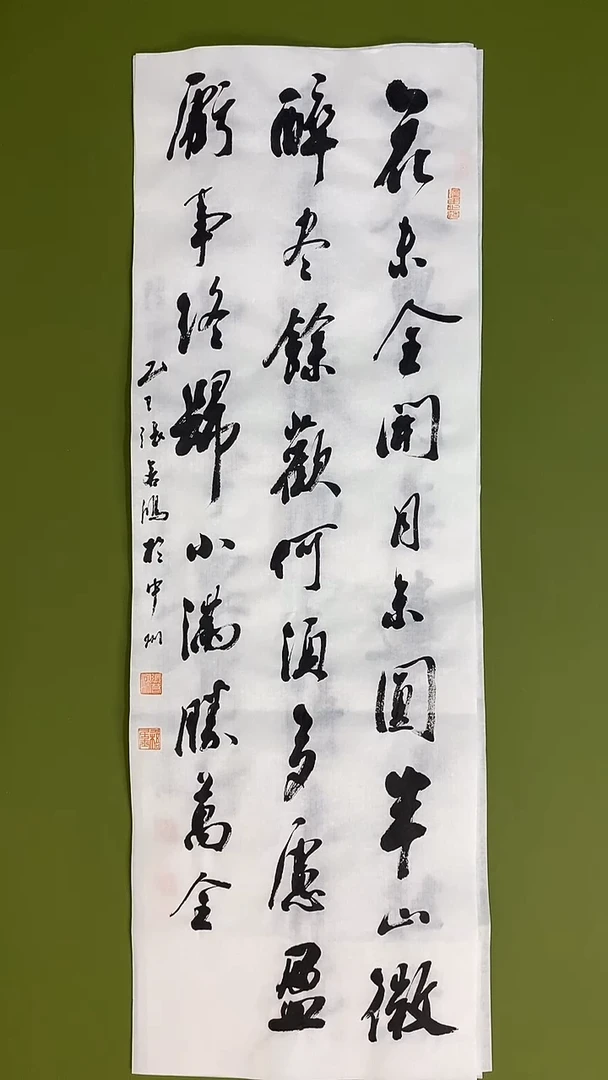 花未全開月未圓半山微
醉尽餘歡何須多慮盈
虧事終歸小滿勝萬全
乙巳張鴻於中州